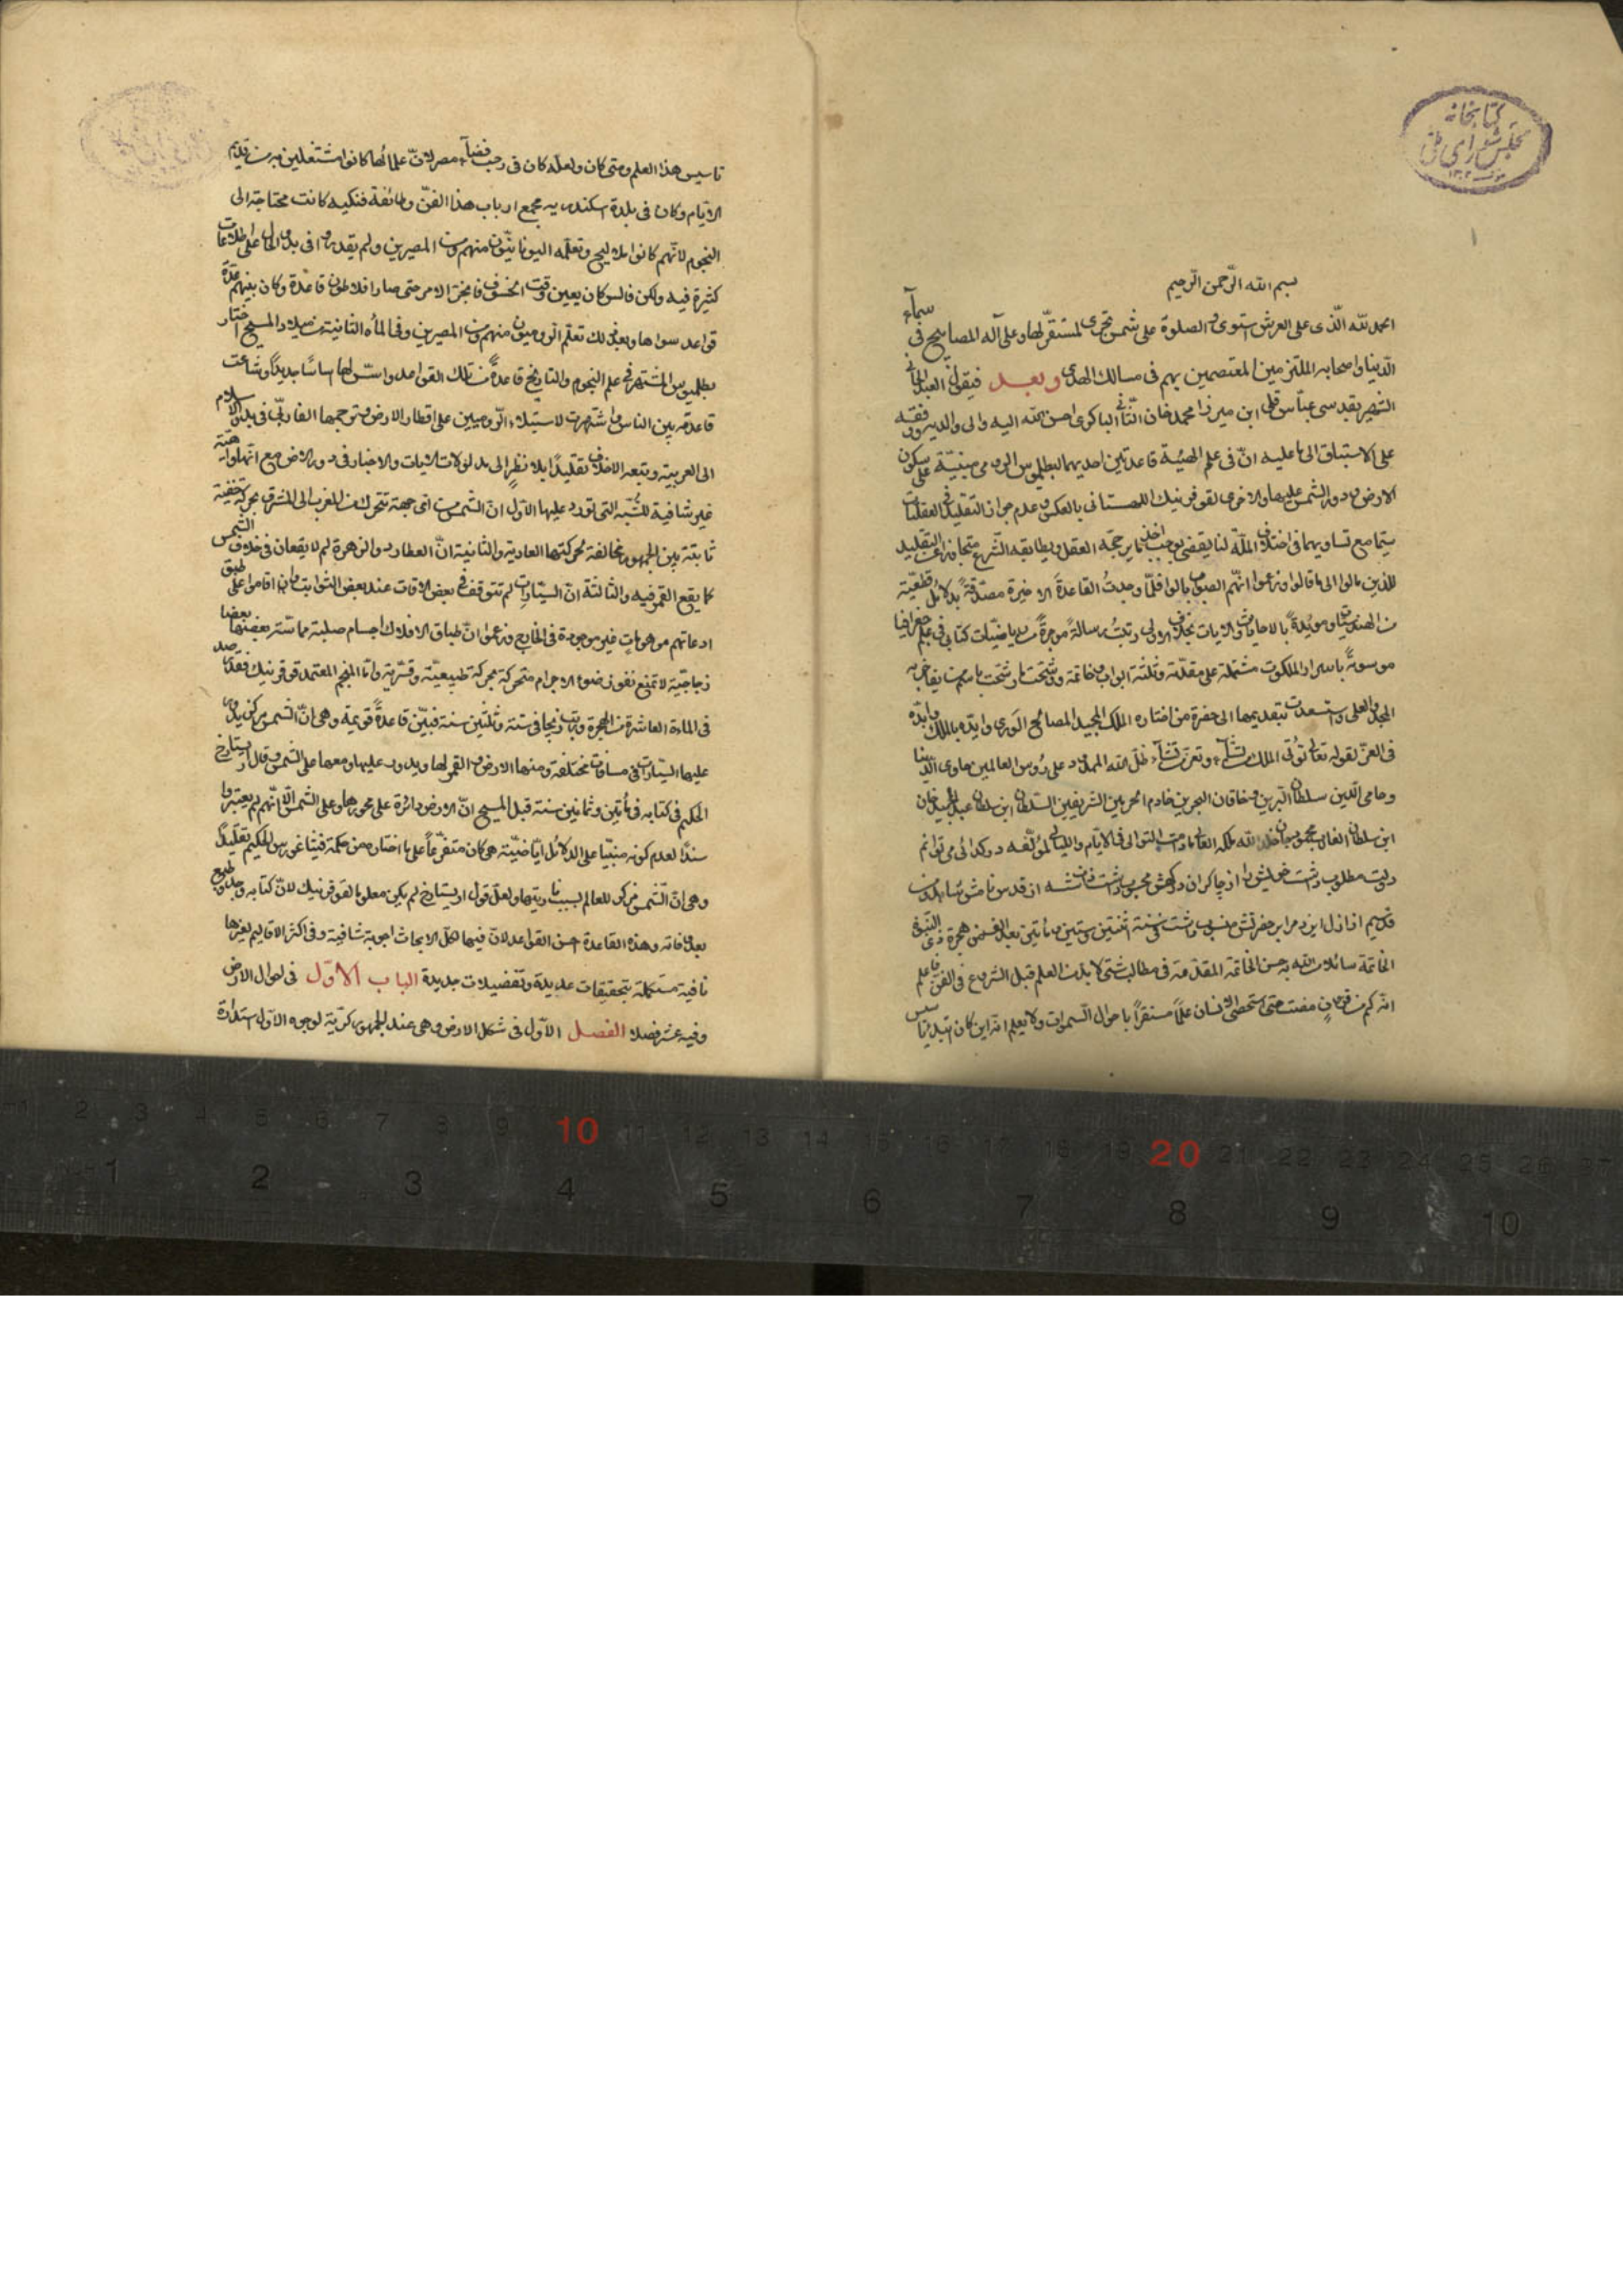 كتابخانه
مجلس شورای ملی
بسم الله الرّحمن الرّحيم
الحمد لله الّذى على العرش استوى و الصلوة على شمس تجرى لمستقرّ لها و على آله المصابيح فى سمآء
الدّنيا و اصحابه الملتزمين المعتصمين بهم فى مسالك الهدى و بعد فيقول العبد الجانى
الشهير بقدسى عبّاس قلى ابن ميرزا محمد خان الثّانى الباكوى احسن الله اليه و الى والديه و وفقه
على الاستباق الى ما عليه انّ فى علم الهيئة قاعدتين احديهما لبطلميوس الرومى مبنيّة على سكون
الارض و دور الشمس عليها و الاخرى لقوفرنيك اللهستانى بالعكس و عدم جواز التقليد فى العقليّات
سيّما مع تساويهما فى اختلاف الملّة لنا يقضى بوجب اخذ ما يرجحه العقل و يطابقه الشرع متجاوزا عن التقليد
للذين مالوا الى ما قالوا و زعموا انّهم الصواب بالوا فلمّا وجدتُ القاعدة الاخيرة مصدّقةً بدلائل قطعيّة
من الهندسيّات و مويّدةً بالاحاديث و الايات بخلاف الاولى رتبتُ رسالةً موجزةً من رياضيّات كتابى فى علم جغرافيا
موسومةً باسرار الملكوت مشتملة على مقدّمة و ثلثة ابواب و خاتمة و وشّحتها و رشّحت باسم من يفاخر به
المجد و العلى و استسعدت بتقديمها الى حضرة من اختاره الملك المجيد لمصالح الورى و ايّده بالملك و ابّده
فى العزّ لقوله تعالى تؤتى الملك من تشآء و تعزّ من تشآء ظلّ الله الممدود على رؤس العالمين حاوى الدّنيا
و حامى الدّين سلطان البرّين و خاقان البحرين خادم الحرمين الشريفين السّلطان ابن سلطان عبد المجيد خان
ابن سلطان الغازى محمود خان خلد الله ملكه العالى ما دامت التوالى فى الايّام و الليالى لمؤلّفه در كدائى مى توانم
دولت مطلوب داشت خويش را از چاكران دركهش محسوب داشت
قديم از ازل ايزد مر اين حضرتش منسوب داشت فى سنة اثنتين و ستين و مأتين بعد الالف من هجرة
الخاتمة سائلا من الله به حسن الخاتمة المقدّمة فى مطالب شتى لا بد من العلم قبل الشروع فى الفنّ فاعلم
انّه كم من قرون مضت حتى استحصل الانسان علماً مستقراً باحوال السّموات و لا يعلم انّه اين كان ابتدا
تاسيس هذا العلم و متى كان و لعلّه كان فى رحب فضآء مصر لانّ علمائها كانوا مشتغلين به من قديم
الايّام و كان فى بلدة اسكندريه مجمع ارباب هذا الفنّ و طائفة فنكيه كانت محتاجة الى
النجوم لانّهم كانوا ملاليح و تعلّمه اليونانيّون منهم و من المصريين و لم يقدروا فى بدو الحال على اطلاعات
كثيرة فيه و لكن فالس كان يعين وقت الخسوف فانجرّ الامر حتى صار افلاطون قاعدة و كان بينهم عدّة
قواعد سواها و بعد ذلك تعلّم الروميون منهم و من المصريين و فى المأه الثانية من ميلاد المسيح اختار
بطلميوس المشتهر فى علم النجوم و التاريخ قاعدةً من تلك القواعد و اسّس لها اساسًا جديداً و شاعت
قاعدته بين الناس و اشتهرت لاستيلاء الرّوميين على اقطار الارض و ترجمها الفارابى فى بدو الاسلام
الى العربية و تبعه الاخلاف تقليدًا بلا نظرٍ الى مدلولات الايات و الاخبار فى دور الارض مع انّها واهية
غير شافية للشّبه التى تورد عليها الاوّل انّ الشمس من اىّ جهة تتحرك من المغرب الى المشرق بحركة خفيّة
ثابتة بين الجمهور مخالفة لحركتها العادية و الثانية انّ العطارد و الزهرة لم لا يقعان فى خلاف الشمس
كما يقع القمر فيه و الثالثة انّ السيّارات لم تتوقف فى بعض الاوقات عند بعض الثوابت و ان اقاموا على طبق
ادعائهم موهوماتٍ غير موجودة فى الخارج و زعموا انّ طباق الافلاك اجسام صلبة مماسّة بعضها بعضا
زجاجيّة لا تمنع نفوذ ضوء الاجرام متحركة بحركة طبيعيّة و قسريّة و امّا المنجم المعتمد قوفرنيك فقد رصد
فى المائة العاشرة من الهجرة و رتب زيجا فى ستة و ثلثين سنة فبيّن قاعدةً قويمة و هى انّ الشمس مركز يدور
عليها السيّارات فى مسافات مختلفة و منها الارض و القمر لها و يدور عليها و معها على الشمس و قال اريستارخ
الحكيم فى كتابه فى مأتين و ثمانين سنة قبل المسيح انّ الارض دائرة على محورها و على الشمس الّا انّهم لم يعتبروا
سندًا لعدم كونه مبنيّا على الدلائل الرياضيّة هى كان متفرّعاً على ما اختاره من حكمة فيثاغورس الحكيم تقليدًا
و هى انّ الشّمس مركز للعالم بسبب ناريتها و لعلّ قول اريستارخ لم يكن معلوما لقوفرنيك لانّ كتابه وجد و طبع
بعد وفاته و هذه القاعدة احسن القواعد لانّ فيها لكلّ الابحاث اجوبة شافية و فى اكثر الاقاليم لغيرها
نافية مستكملة بتحقيقات عديدة و تفضيلات جديدة الباب الاوّل فى احوال الارض
و فيه عشر فصلا الفصل الاوّل فى شكل الارض و هى عند الجمهور كرّية لوجوه الاوّل استدارة